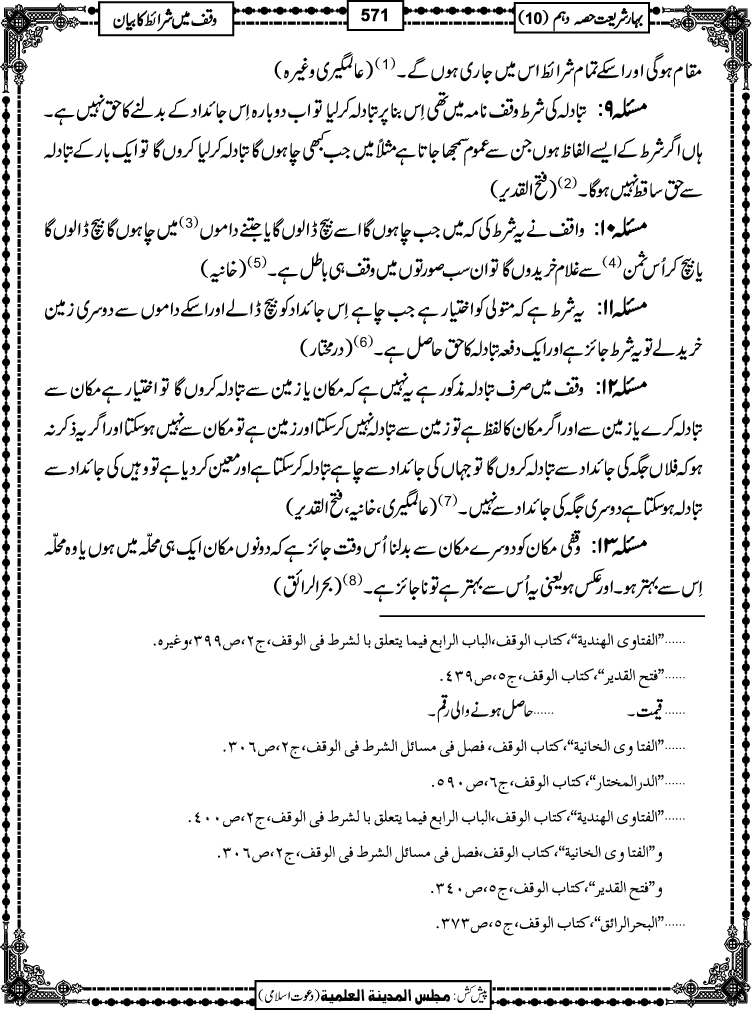 بہار شریعت حصہ دہم (10)
571
وقف میں شرائط کا بیان
مقام ہوگی اور اسکے تمام شرائط اس میں جاری ہوں گے۔ (1) (عالمگیری وغیرہ)
مسئلہ ۹: تبادلہ کی شرط وقف نامہ میں تھی اِس بنا پر تبادلہ کرلیا تو اب دوبارہ اِس جائداد کے بدلنے کا حق نہیں ہے۔
ہاں اگر شرط کے ایسے الفاظ ہوں جن سے عموم سمجھا جاتا ہے مثلاً میں جب کبھی چاہوں گا تبادلہ کرلیا کروں گا تو ایک بار کے تبادلہ
سے حق ساقط نہیں ہوگا۔ (2) (فتح القدیر)
مسئلہ ۱۰: واقف نے یہ شرط کی کہ میں جب چاہوں گا اسے بیچ ڈالوں گا یا جتنے داموں (3) میں چاہوں گا بیچ ڈالوں گا
یا بیچ کر اُس ثمن (4) سے غلام خریدوں گا تو ان سب صورتوں میں وقف ہی باطل ہے۔ (5) (خانیہ)
مسئلہ ۱۱: یہ شرط ہے کہ متولی کو اختیار ہے جب چاہے اِس جائداد کو بیچ ڈالے اور اسکے داموں سے دوسری زمین
خرید لے تو یہ شرط جائز ہے اور ایک دفعہ تبادلہ کا حق حاصل ہے۔ (6) (درمختار)
مسئلہ ۱۲: وقف میں صرف تبادلہ مذکور ہے یہ نہیں ہے کہ مکان یا زمین سے تبادلہ کروں گا تو اختیار ہے مکان سے
تبادلہ کرے یا زمین سے اور اگر مکان کا لفظ ہے تو زمین سے تبادلہ نہیں کرسکتا اور زمین ہے تو مکان سے نہیں ہوسکتا اور اگر یہ ذکر نہ
ہو کہ فلاں جگہ کی جائداد سے تبادلہ کروں گا تو جہاں کی جائداد سے چاہے تبادلہ کرسکتا ہے اور معین کردیا ہے تو وہیں کی جائداد سے
تبادلہ ہوسکتا ہے دوسری جگہ کی جائداد سے نہیں۔ (7) (عالمگیری، خانیہ، فتح القدیر)
مسئلہ ۱۳: وقفی مکان کو دوسرے مکان سے بدلنا اُس وقت جائز ہے کہ دونوں مکان ایک ہی محلّہ میں ہوں یا وہ محلّہ
اِس سے بہتر ہو۔ اور عکس ہو یعنی یہ اُس سے بہتر ہے تو ناجائز ہے۔ (8) (بحرالرائق)
......”الفتاوی الھندیة“، کتاب الوقف،الباب الرابع فیما یتعلق با لشرط فی الوقف،ج۲،ص۳۹۹،وغیرہ.
......”فتح القدیر“، کتاب الوقف،ج۵،ص۴۳۹.
......قیمت۔ ......حاصل ہونے والی رقم۔
......”الفتا وی الخانیة“، کتاب الوقف، فصل فی مسائل الشرط فی الوقف،ج۲،ص۳۰۶.
......”الدرالمختار“، کتاب الوقف،ج۶،ص۵۹۰.
......”الفتاوی الھندیة“، کتاب الوقف،الباب الرابع فیما یتعلق با لشرط فی الوقف،ج۲،ص۴۰۰.
و”الفتا وی الخانیة“، کتاب الوقف،فصل فی مسائل الشرط فی الوقف،ج۲،ص۳۰۶.
و”فتح القدیر“، کتاب الوقف،ج۵،ص۳۴۰.
......”البحرالرائق“، کتاب الوقف،ج۵،ص۳۷۳.
پیش کش: مجلس المدینة العلمیة (دعوت اسلامی)